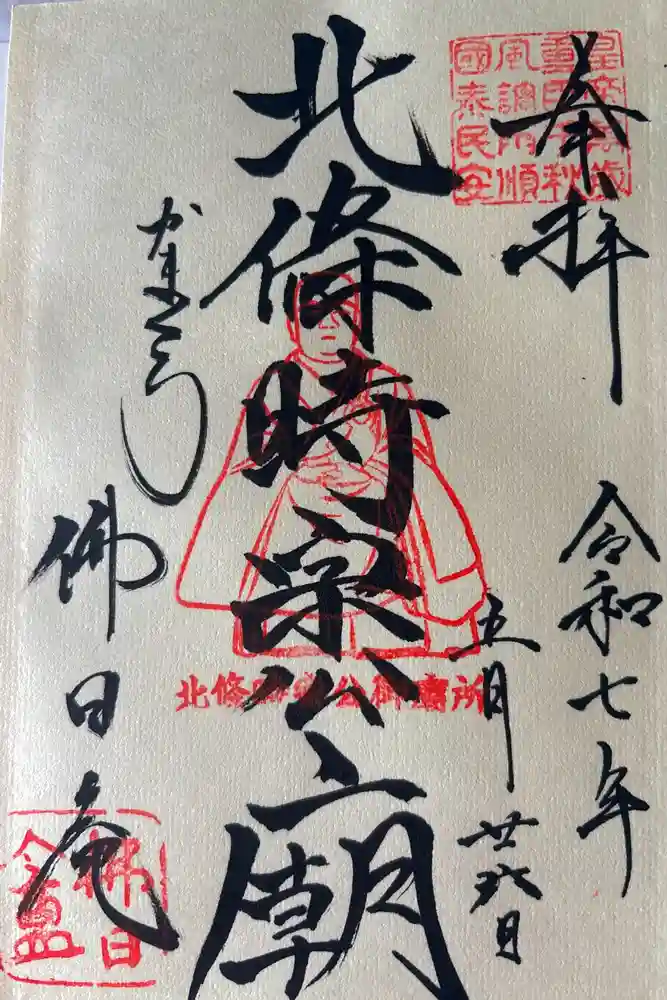 皇帝萬歳
重臣千秋
風調雨順
國泰民安
奉拝
令和七年
五月廿
日
北條時宗公廟
北條時宗公御廟所
かまくら
佛日庵
佛日